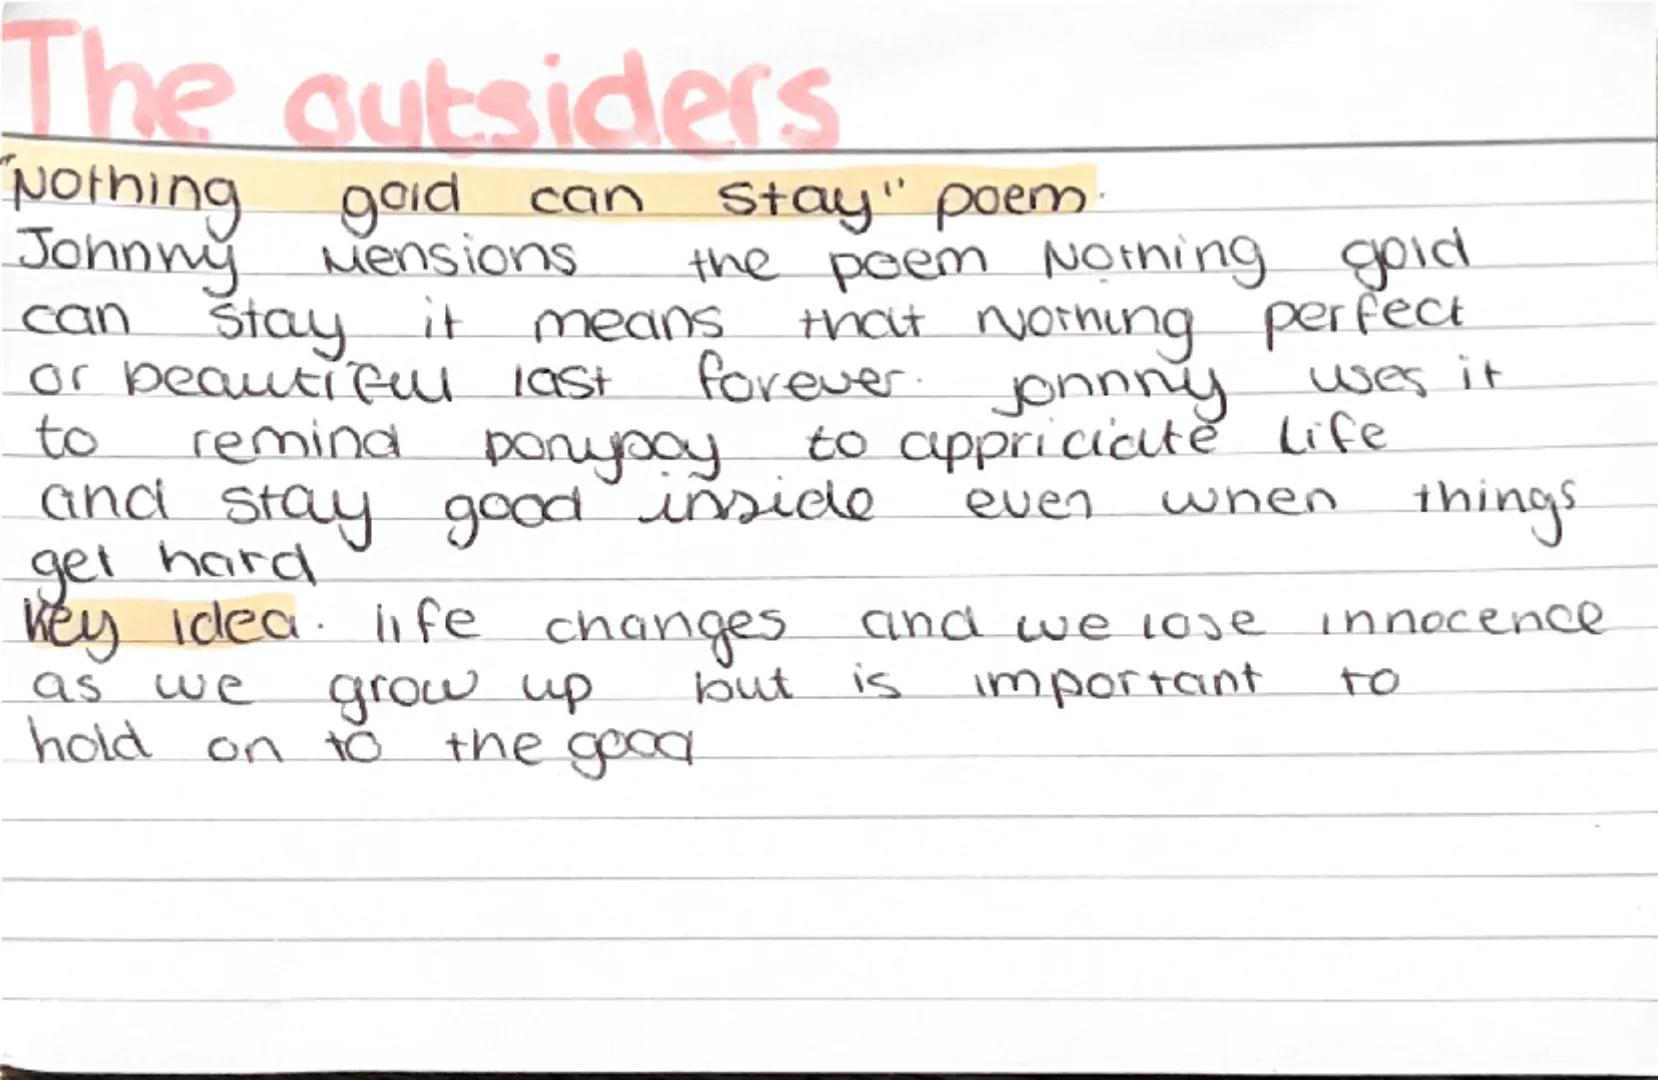 The outsiders
"Nothing gold can stay" poem.
Johnny Mensions the poem Nothing gold
can stay it means that Nothing perfect
or beautiful last forever. Johnny uses it
to remind ponyboy to appriciate life
and stay good inside even when things
get hard
key idea. life changes and we lose innocence
as we grow up but is important to
hold on to the good